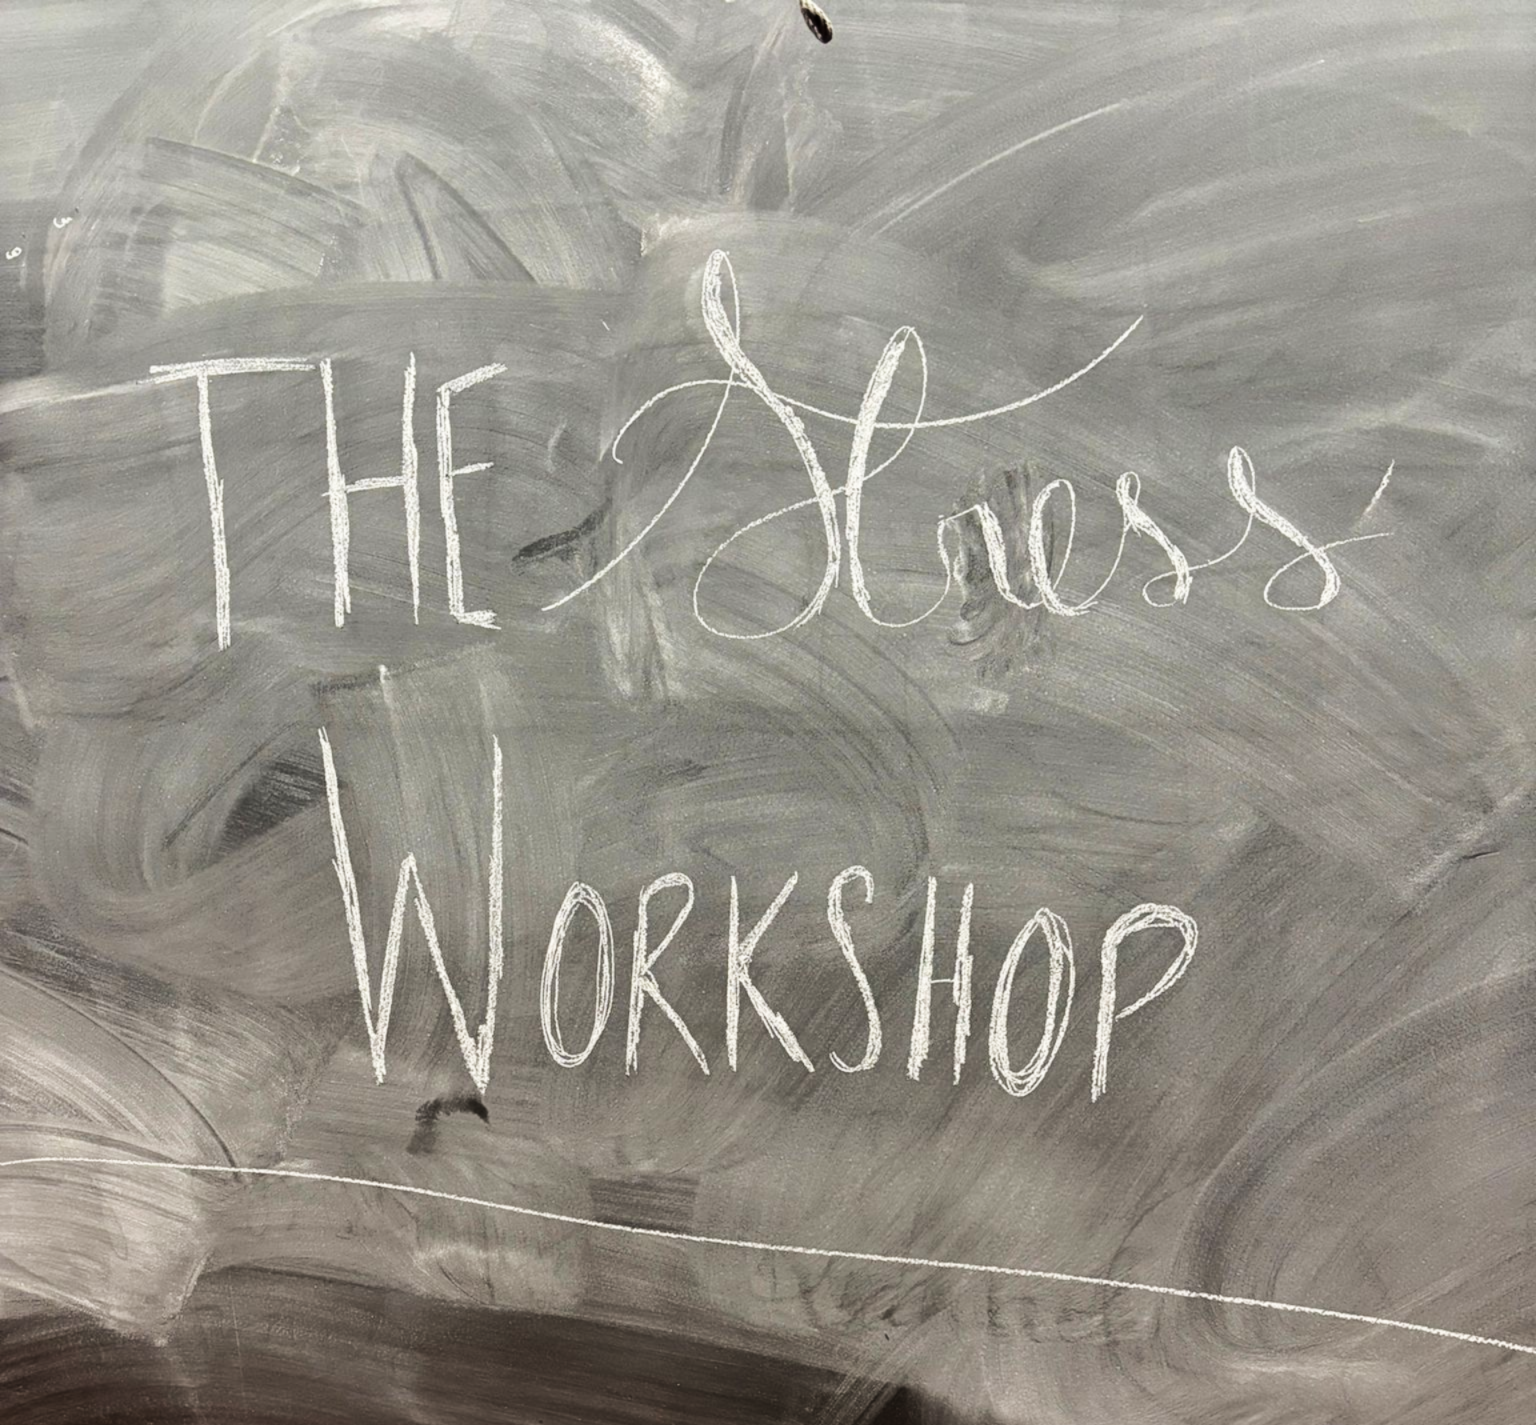 THE Stress
WORKSHOP